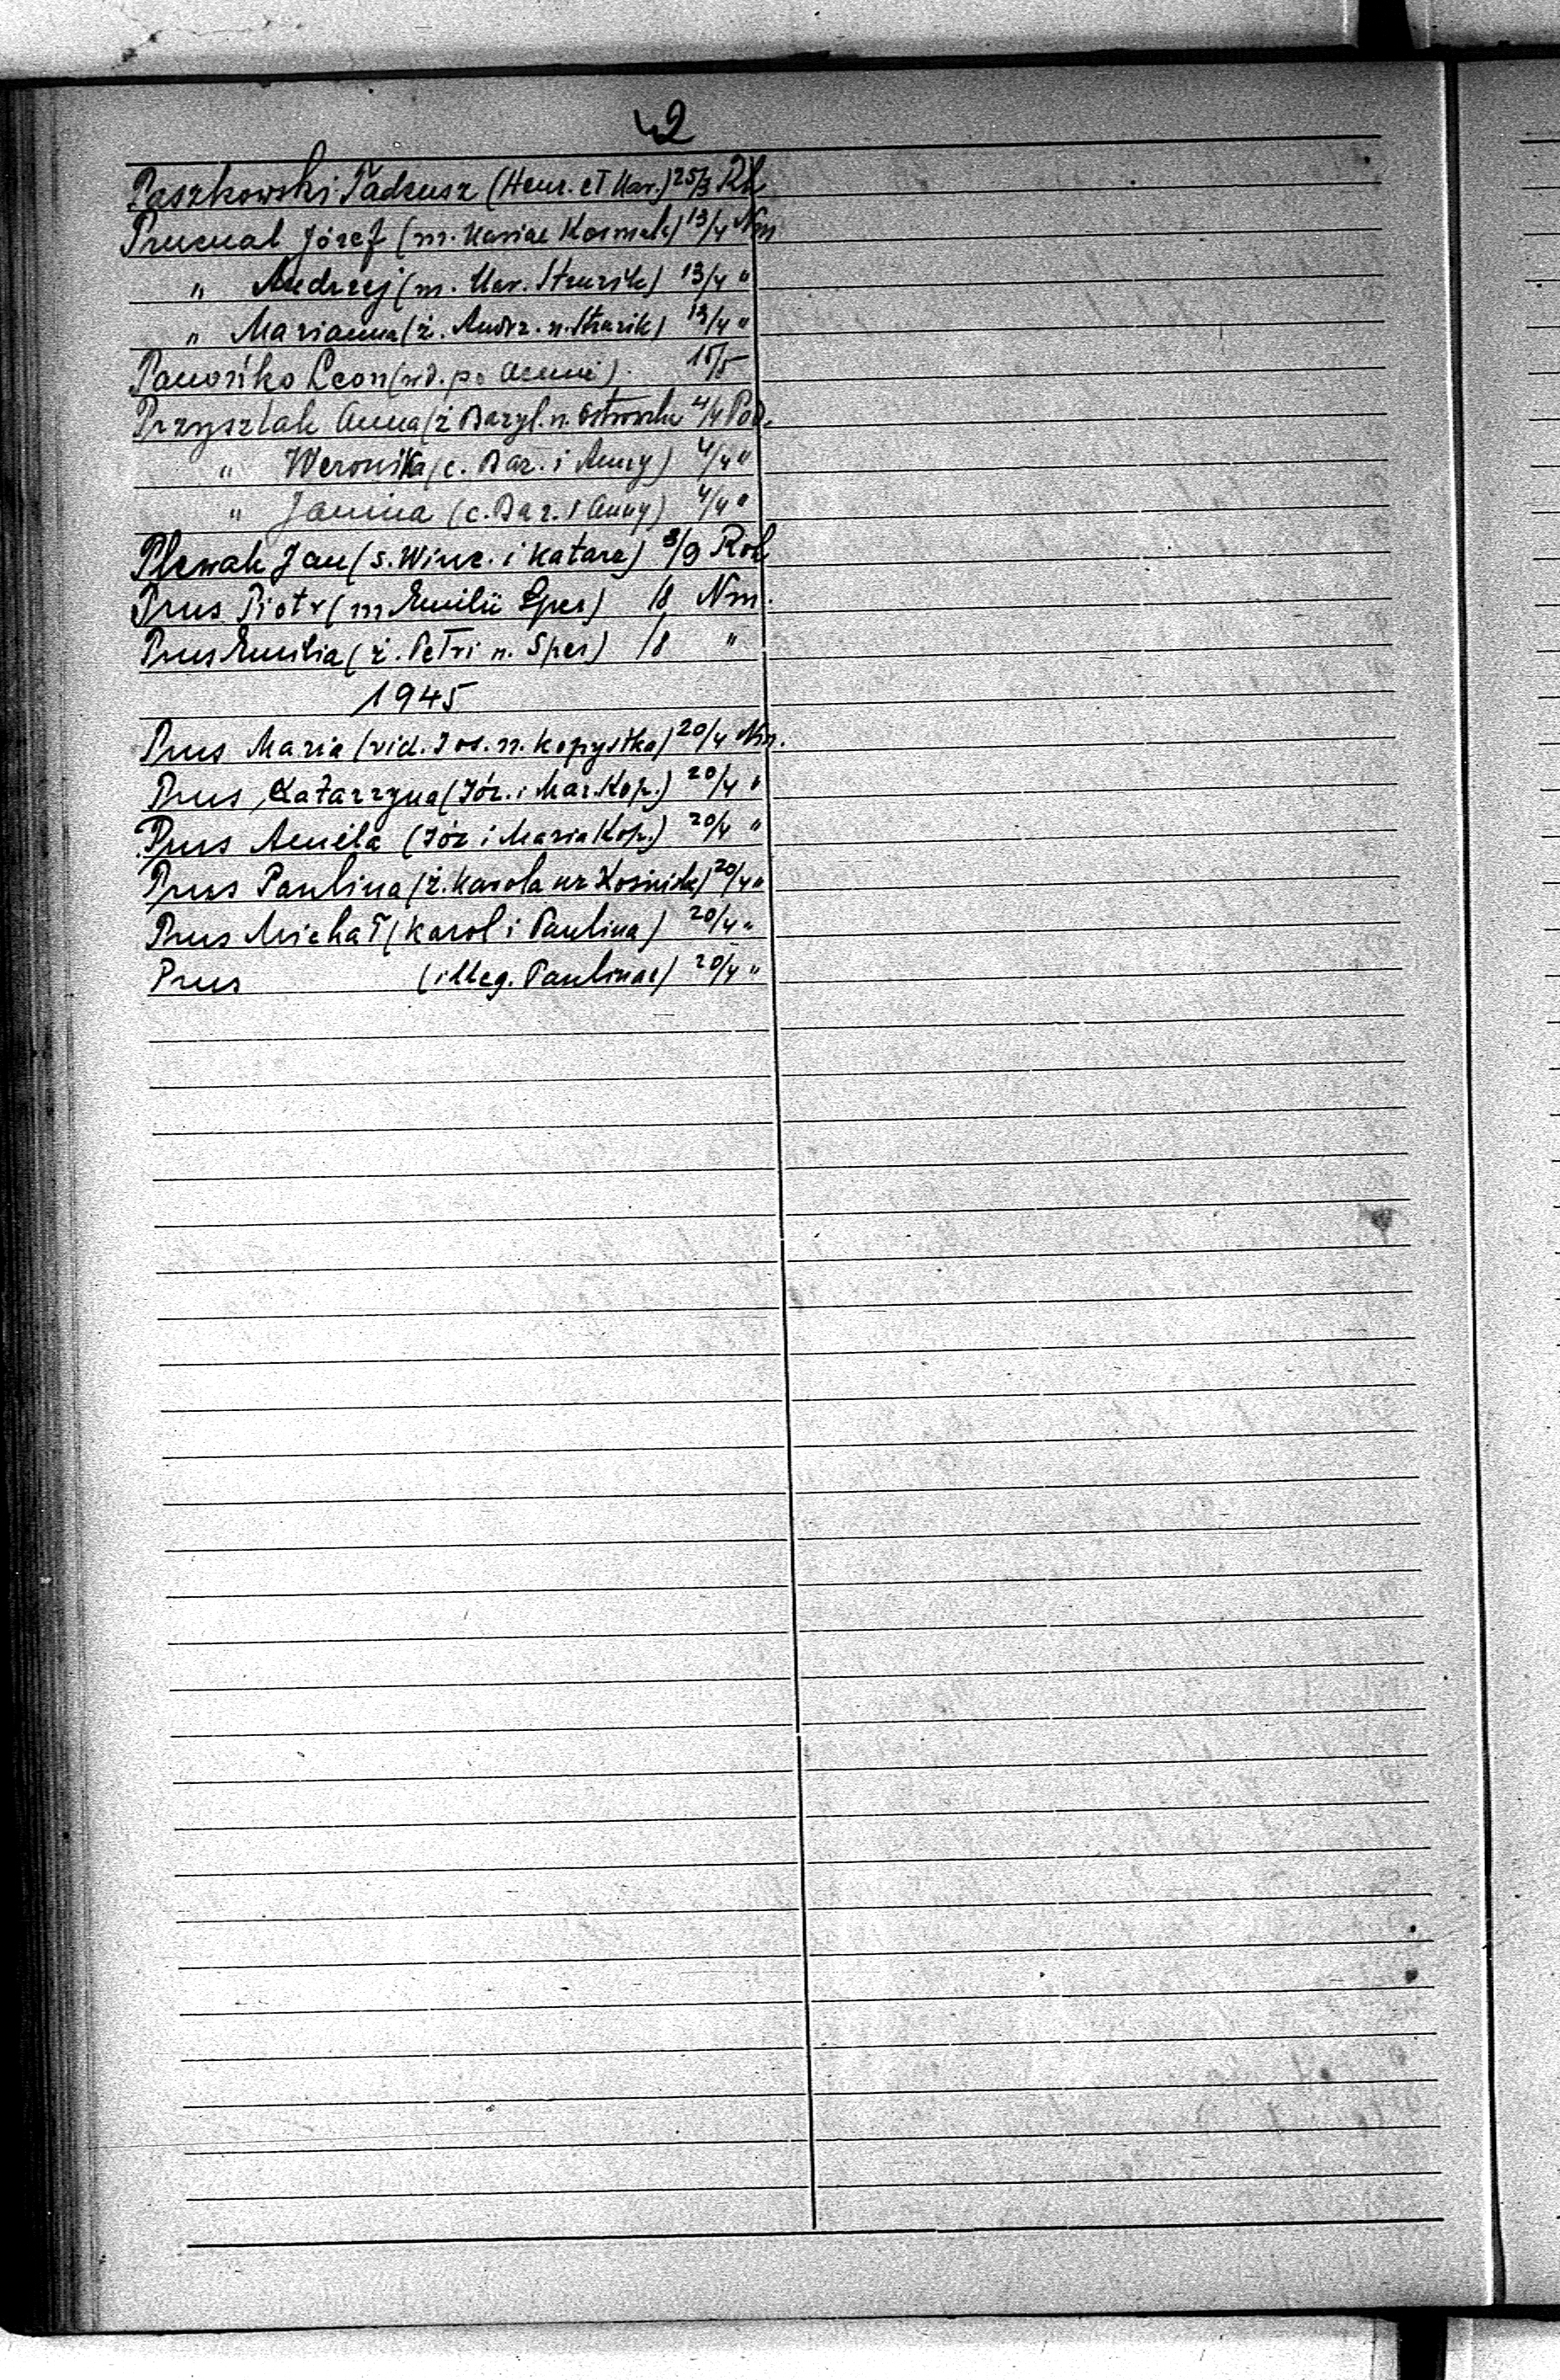 42
Paszkowski Tadeusz (Henr. et Mar.) 25/3 Rh
Prucnal Józef (m. Mariae Kosmala) 13/4 Nm
" Andrzej (m. Mar. Struzik) 13/4 "
" Marianna (ż. Andrz. n. Struzik) 13/4 "
Panońko Leon (wd. po Annie). 15/5
Przysztak Anna (ż Bazyl. n. 4/4 Pod.
" Weronika (c. Baz. i Anny) 4/4 "
" Janina (c. Baz. i Anny) 4/4 "
Plewak Jan (s. Winc. i Katarz) 8/9 Roh
Prus Piotr (m Emilii Spes) /8 Nm.
Prus Emilia (ż. Petri n. Spes) /8 "
1945
Prus Maria (vid. Jos. n. Kopystka) 20/4 Nm.
Prus Katarzyna (Józ. i Mar. Kop.) 20/4 "
Prus Aniela (Józ i Maria Kop.) 20/4 "
Prus Paulina (ż. Karola ur 20/4 "
Prus Michał (Karol i Paulina) 20/4 "
Prus (illeg. Paulinae) 20/4 "